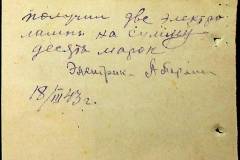 получил две электро
лампы на сумму
десять марок
Электрик
18/III 43 г.